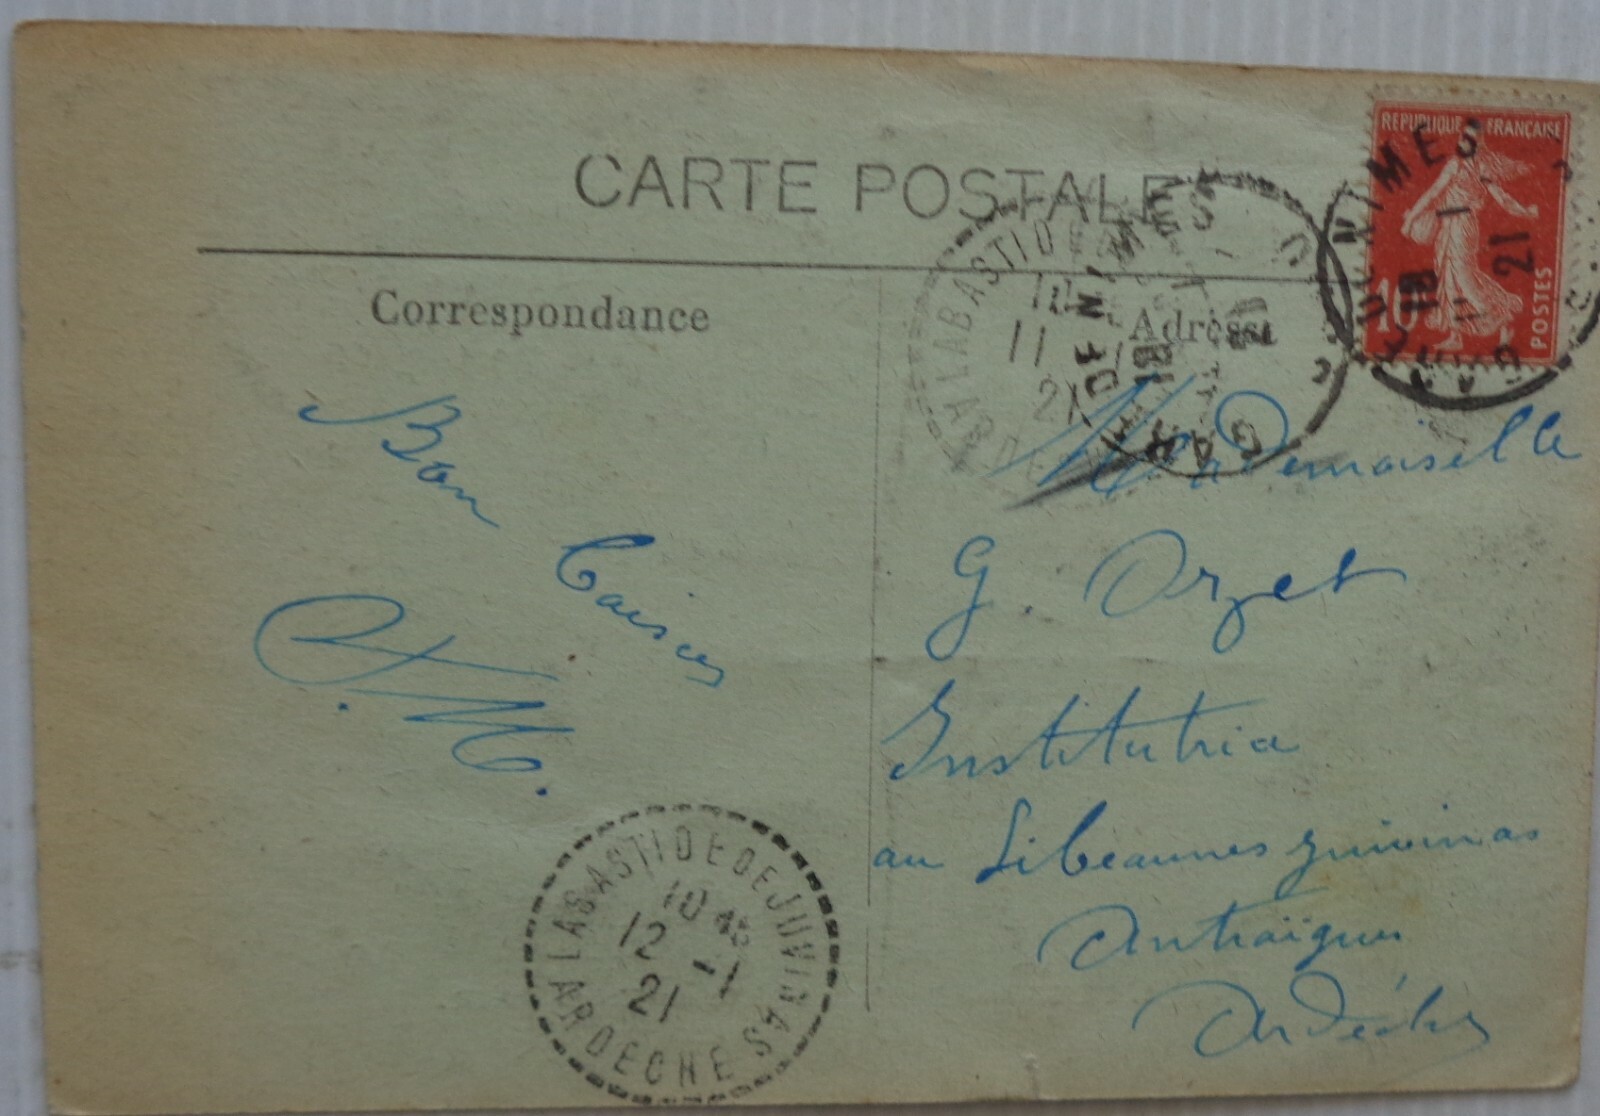 CARTE POSTALE
REPUBLIQUE FRANÇAISE
10
POSTES
NIMES
18
21
NIMES
GARD
18
LABASTIDE
11
21
Correspondance
Adresse
Bon
Baisers
M.
Mademoiselle
G. Orzet
Institutrice
au Libeaunes
Antraïgues
Ardèche
LABASTIDE DE JUVINAS
10 45
12 - 1
21
ARDECHE